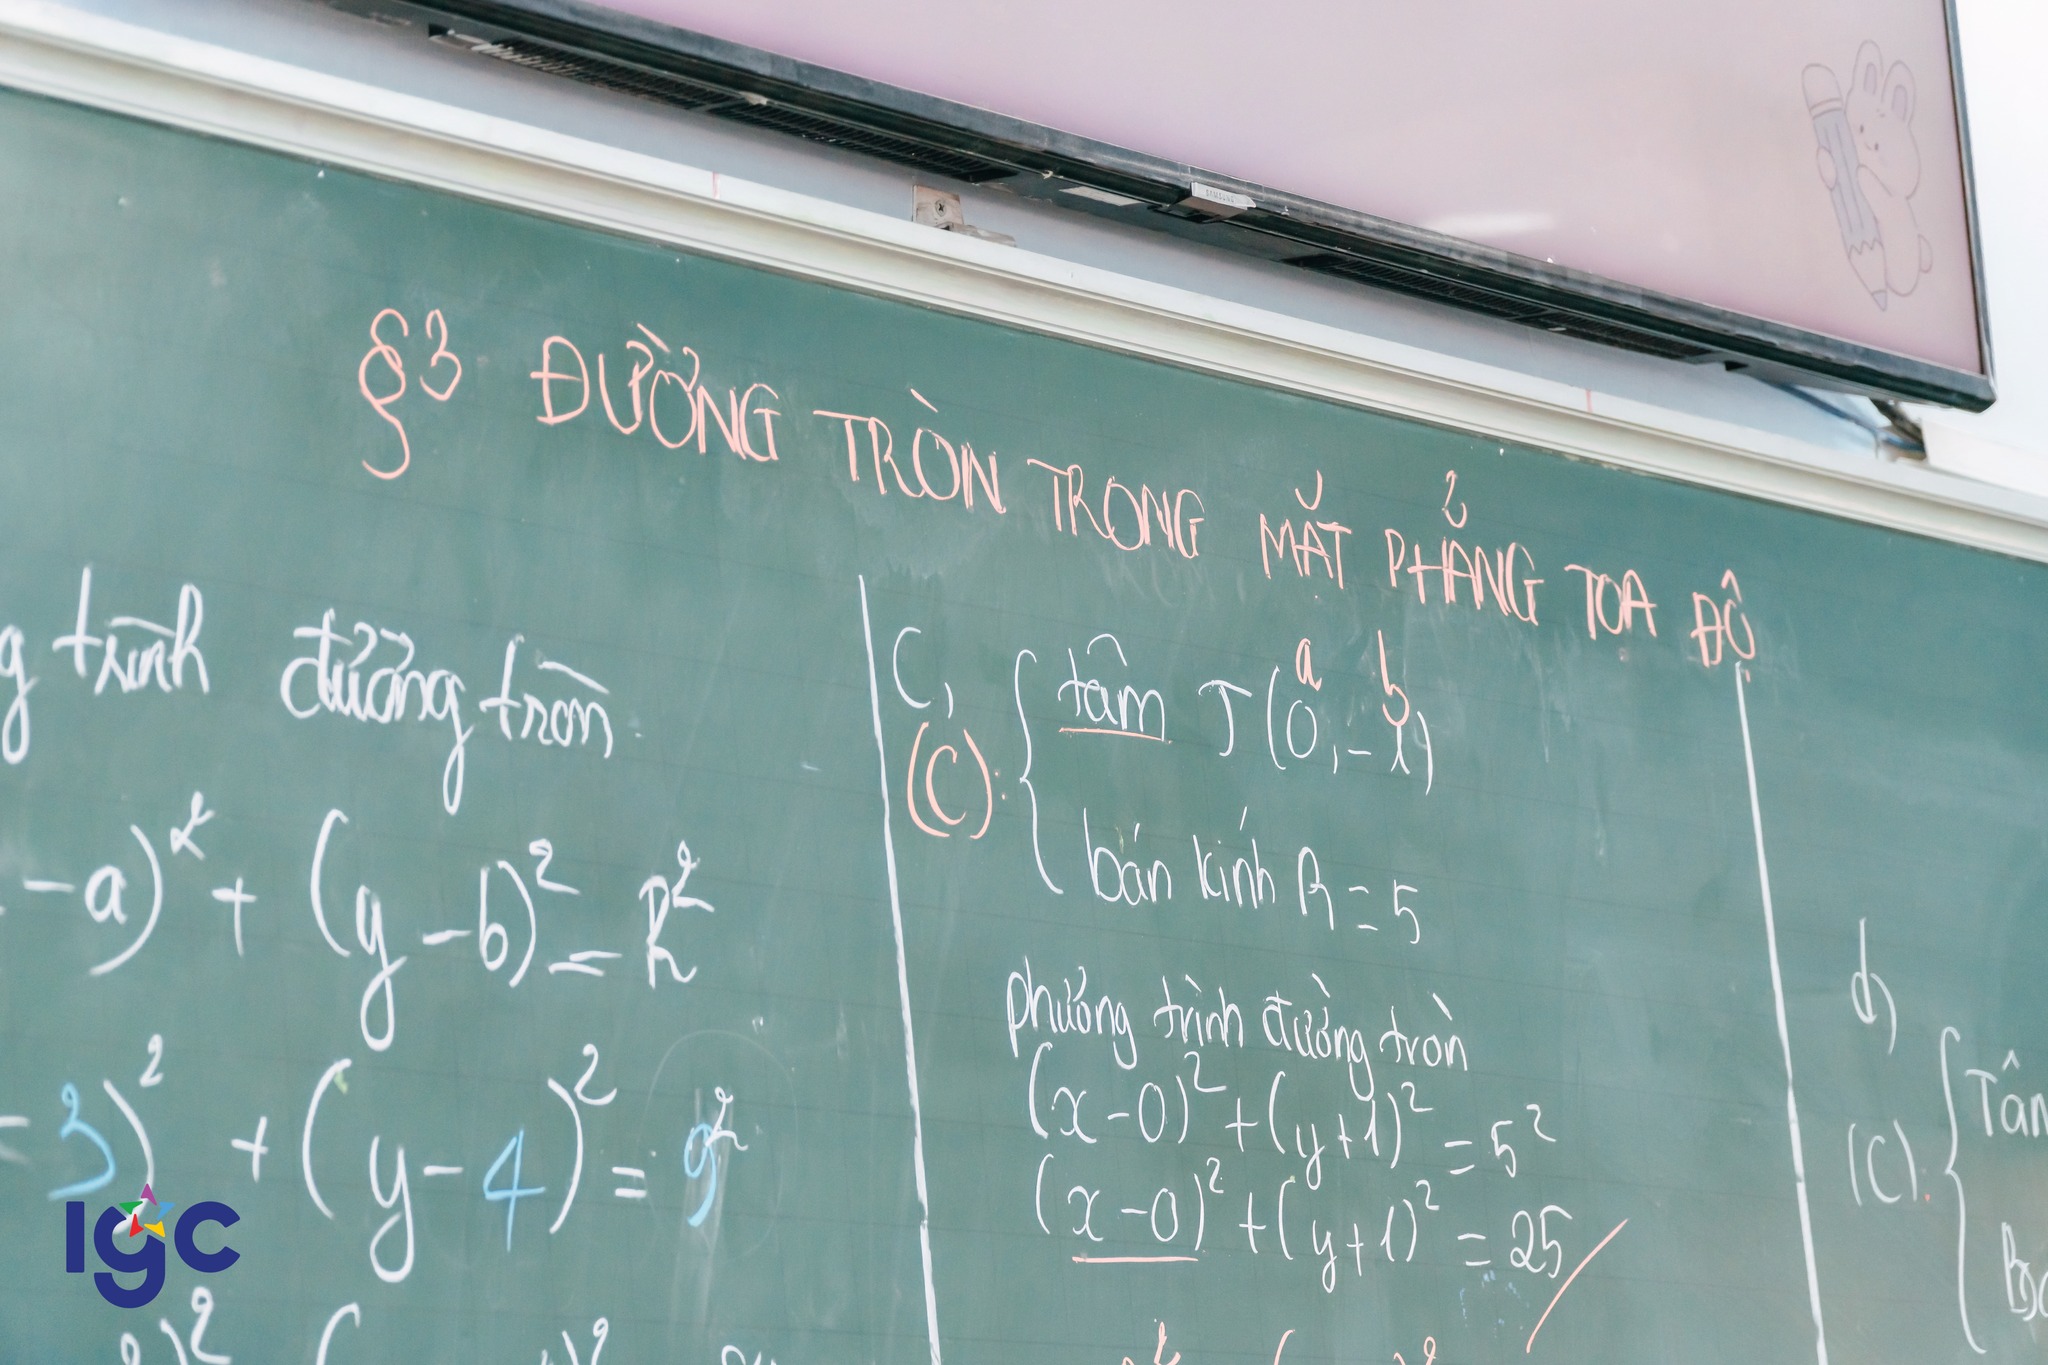 §3 ĐƯỜNG TRÒN TRONG MẶT PHẲNG TOẠ ĐỘ
trình đường tròn.
-a)² + (y-b)² = R²
-3)² + (y-4)² = 9²
c,
(C): { tâm J(0,-1)
a b
bán kính R=5
phương trình đường tròn
(x-0)²+(y+1)² = 5²
(x-0)²+(y+1)² = 25
d)
(C): {
SAMSUNG
IGC